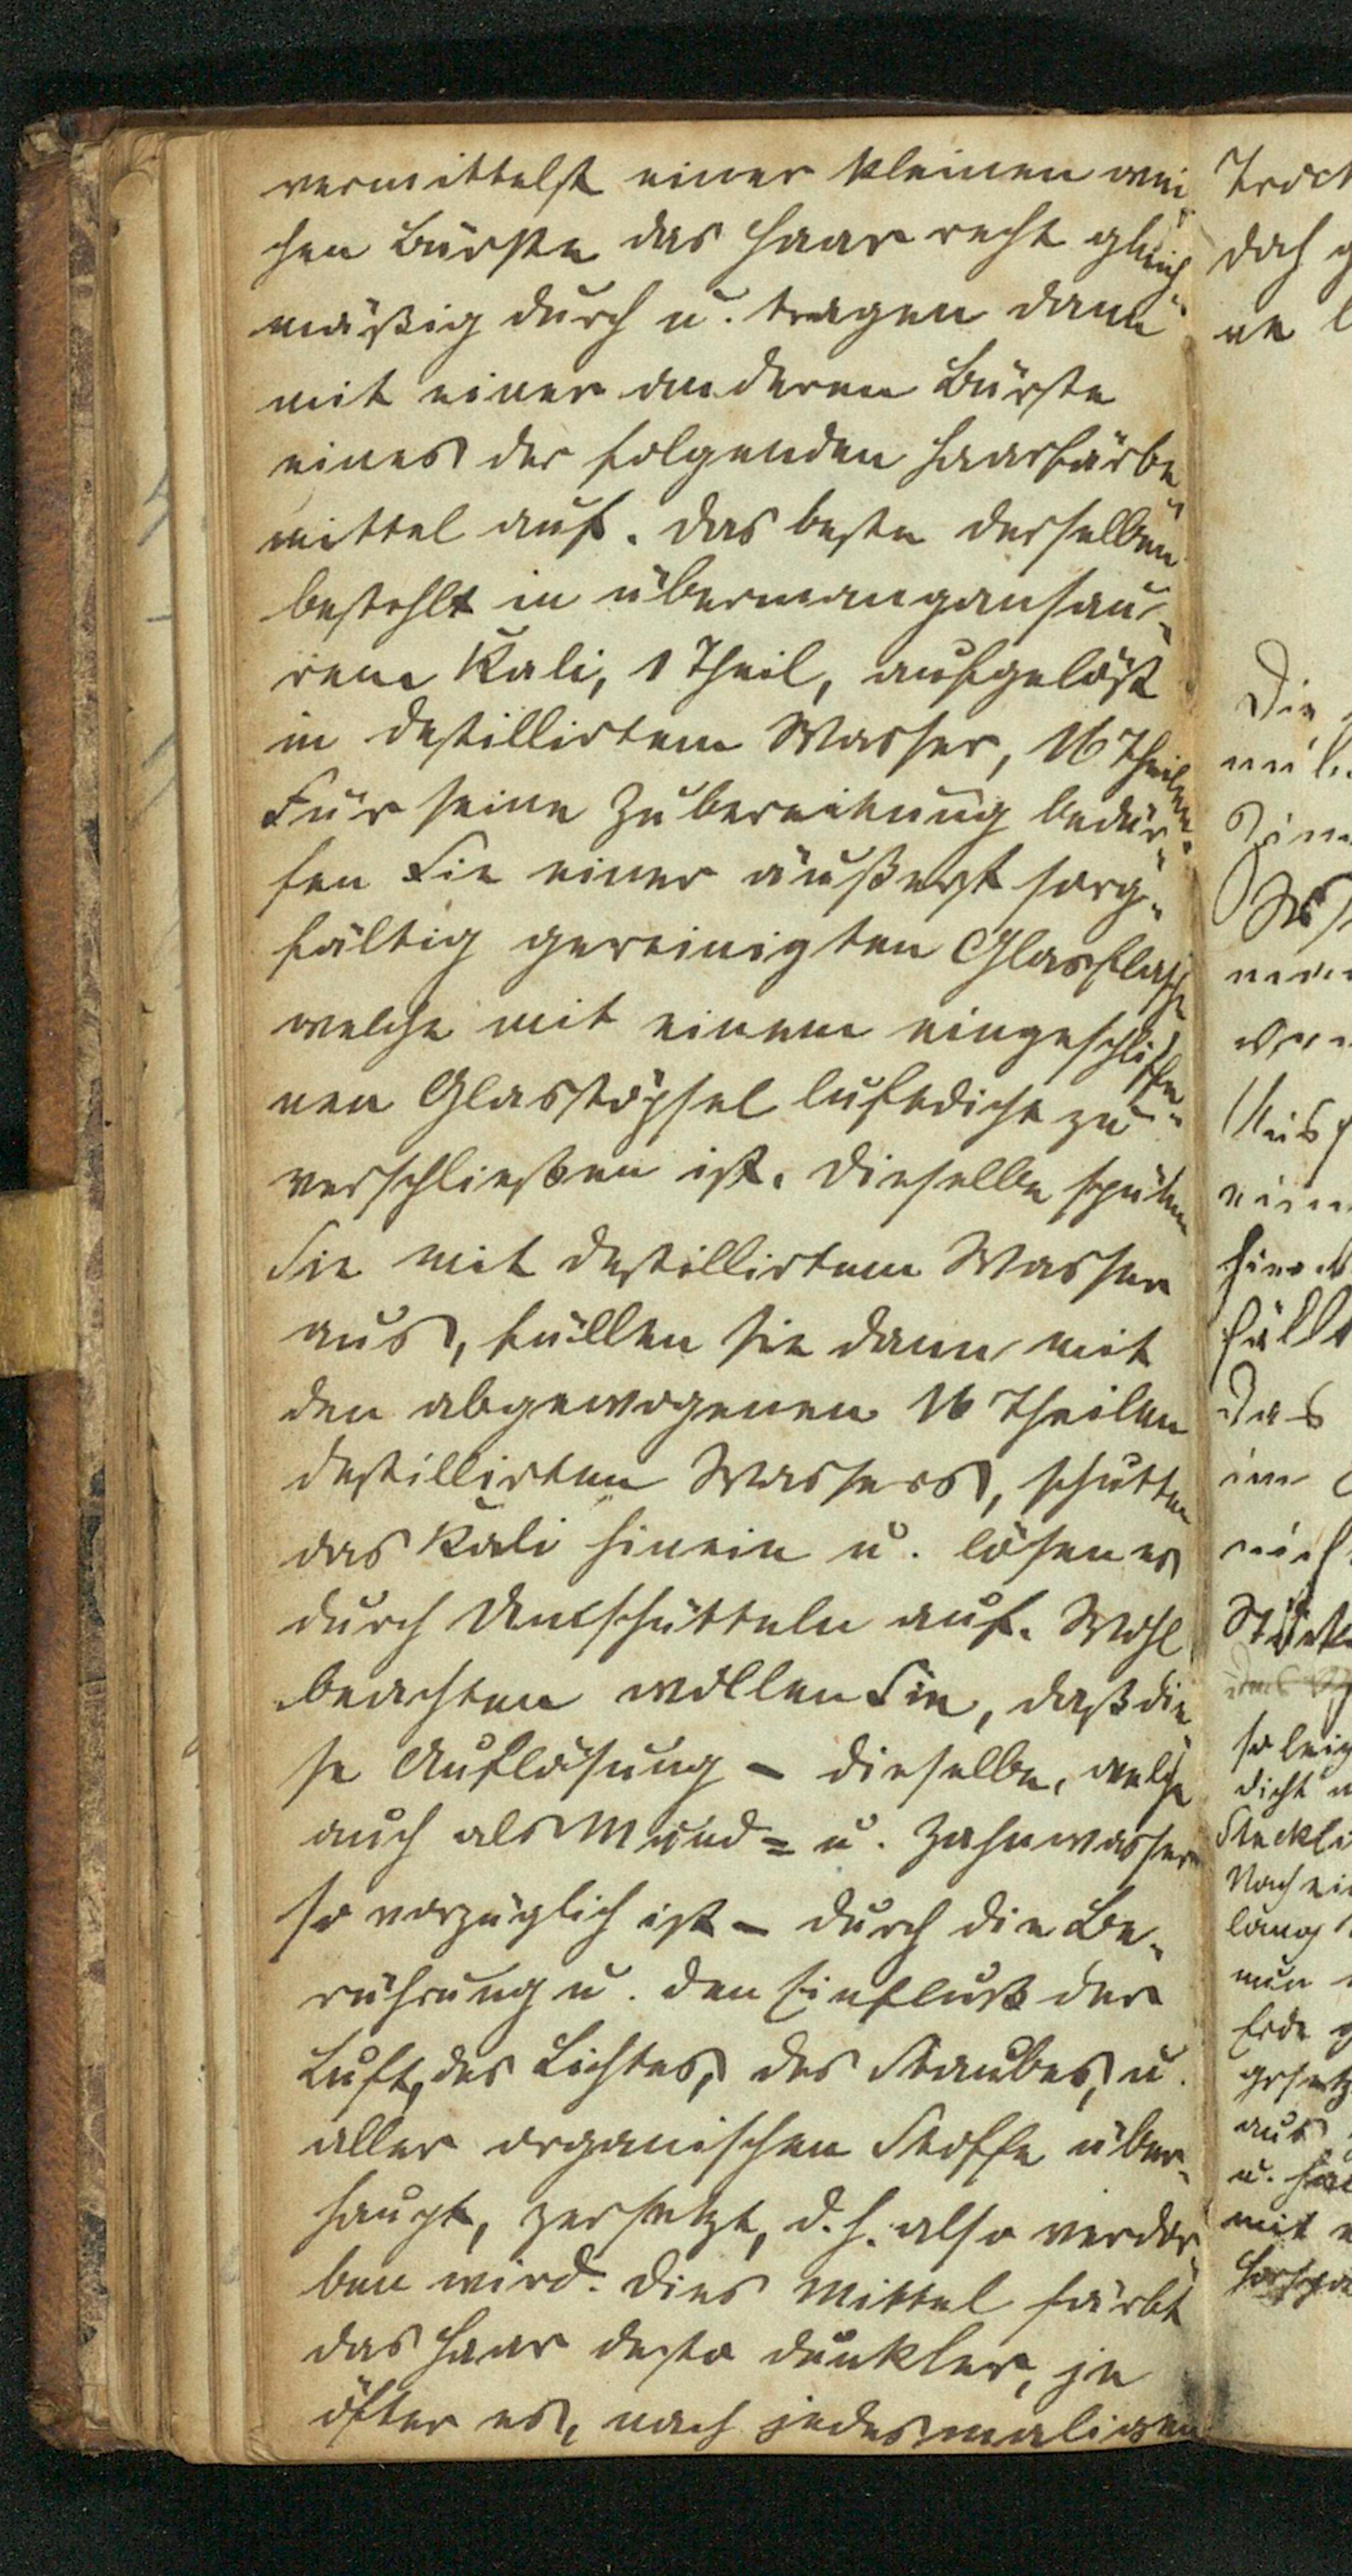 vermittelst einer kleinen wei-
chen Bürste das Haar recht gleich-
mäßig durch u. tragen dann
mit einer anderen Bürste
eines der folgenden Haarfärbe-
mittel auf. Das beste derselben
besteht in übermangansau-
rem Kali, 1 Theil, aufgelöst
in destillirtem Wasser, 16 Theilen.
Für seine Zubereitung bedür-
fen Sie einer äußerst sorg-
fältig gereinigten Glasflasche
welche mit einem eingeschliffe-
nen Glasstöpsel luftdicht zu
verschließen ist. Dieselbe spülen
Sie mit destillirtem Wasser
aus, füllen sie dann mit
den abgewogenen 16 Theilen
destillirten Wassers, schütten
das Kali hinein u. lösen es
durch Umschütteln auf. Wohl
beachten wollen Sie, daß die-
se Auflösung – dieselbe, welche
auch als Mund= u. Zahnwasser
so vorzüglich ist – durch die Be-
rührung u. den Einfluß der
Luft, des Lichtes, des Staubes, u.
aller organischen Stoffe über-
haupt, zersetzt, d. h. also verdor-
ben wird. Dies Mittel färbt
das Haar desto dunkler, je
öfter es, nach jedesmaligem
Trock
doch
Die
hinab
fällt
Das
im
nich
Stück
dicht
Nach ei
lang
nun
Erde
gesetz
aus
mit